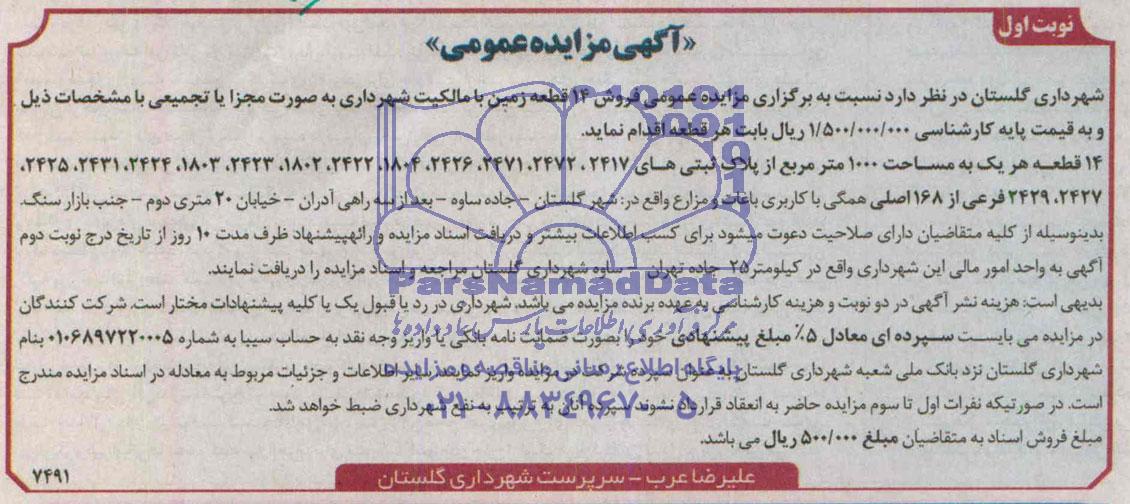 نوبت اول
«آگهی مزایده عمومی»
شهرداری گلستان در نظر دارد نسبت به برگزاری مزایده عمومی فروش ۱۴ قطعه زمین با مالکیت شهرداری به صورت مجزا یا تجمیعی با مشخصات ذیل
و به قیمت پایه کارشناسی ۱/۵۰۰/۰۰۰/۰۰۰ ریال بابت هر قطعه اقدام نماید.
۱۴ قطعه هر یک به مساحت ۱۰۰۰ متر مربع از پلاک ثبتی های ۲۴۱۷، ۲۴۷۲، ۲۴۷۱، ۲۴۲۶، ۱۸۰۴، ۲۴۲۲، ۱۸۰۲، ۲۴۲۳، ۱۸۰۳، ۲۴۲۴، ۲۴۳۱، ۲۴۲۵،
۲۴۲۷، ۲۴۲۹ فرعی از ۱۶۸ اصلی همگی با کاربری باغات و مزارع واقع در: شهر گلستان - جاده ساوه - بعد از سه راهی آدران - خیابان ۲۰ متری دوم - جنب بازار سنگ.
بدینوسیله از کلیه متقاضیان دارای صلاحیت دعوت میشود برای کسب اطلاعات بیشتر و دریافت اسناد مزایده و رائهپیشنهاد ظرف مدت ۱۰ روز از تاریخ درج نوبت دوم
آگهی به واحد امور مالی این شهرداری واقع در کیلومتر ۲۵ جاده تهران - ساوه شهرداری گلستان مراجعه و اسناد مزایده را دریافت نمایند.
بدیهی است: هزینه نشر آگهی در دو نوبت و هزینه کارشناسی به عهده برنده مزایده می باشد. شهرداری در رد یا قبول یک یا کلیه پیشنهادات مختار است. شرکت کنندگان
در مزایده می بایست سپرده ای معادل ۵٪ مبلغ پیشنهادی خود را بصورت ضمانت نامه بانکی یا واریز وجه نقد به حساب سیبا به شماره ۰۱۰۶۸۹۷۲۲۰۰۰۵ بنام
شهرداری گلستان نزد بانک ملی شعبه شهرداری گلستان به عنوان سپرده شرکت در مزایده واریز نمایند. سایر اطلاعات و جزئیات مربوط به معادله در اسناد مزایده مندرج
است. در صورتیکه نفرات اول تا سوم مزایده حاضر به انعقاد قرارداد نشوند سپرده آنان به ترتیب به نفع شهرداری ضبط خواهد شد.
مبلغ فروش اسناد به متقاضیان مبلغ ۵۰۰/۰۰۰ ریال می باشد.
علیرضا عرب - سرپرست شهرداری گلستان
۷۴۹۱
ParsNamadData
مرکز فرآوری اطلاعات پارس نماد داده ها
پایگاه اطلاع رسانی مناقصه و مزایده
۰۲۱-۸۸۳۴۹۶۷۰-۵